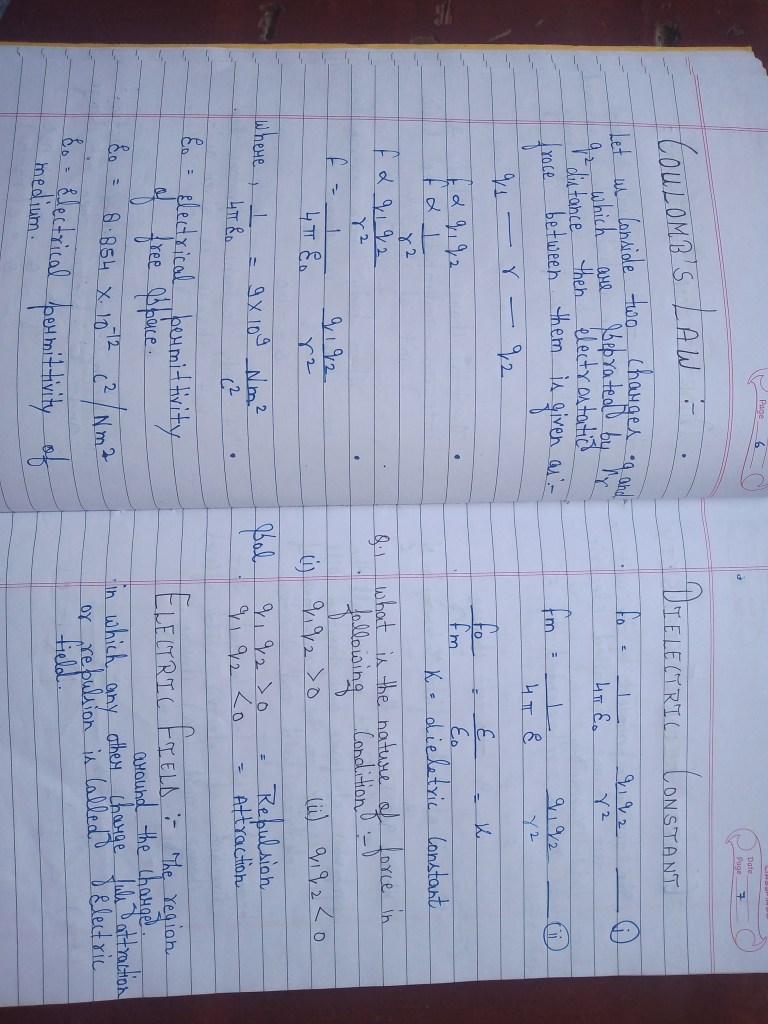 Page 6
COULOMB'S LAW :-
Let us Conside two charges q1 and
q2 which are Seprated by r
distance then electrostatic
froce between them is given as:-
q1 — r — q2
f ∝ q1 q2
f ∝ 1/r²
f ∝ q1 q2/r²
f = 1/4π ε0 q1 q2/r²
where, 1/4π ε0 = 9 × 10⁹ Nm²/c²
ε0 = electrical permittivity
of free Space.
ε0 = 8.854 × 10⁻¹² c²/Nm²
ε0 = Electrical permittivity of
medium.
Date
Page 7
DIELECTRIC CONSTANT
fo = 1/4π ε0 q1 q2/r² — (i)
fm = 1/4π ε q1 q2/r² — (ii)
fo/fm = ε/ε0 = K
K = dieletric constant
Q.1 what is the nature of force in
following Condition :-
(i) q1 q2 > 0 (ii) q1 q2 < 0
Sol q1 q2 > 0 = Repulsion
q1 q2 < 0 = Attraction
ELECTRIC FIELD :- The region
around the charge
in which any other charge attraction
or repulsion is called Electric
field.